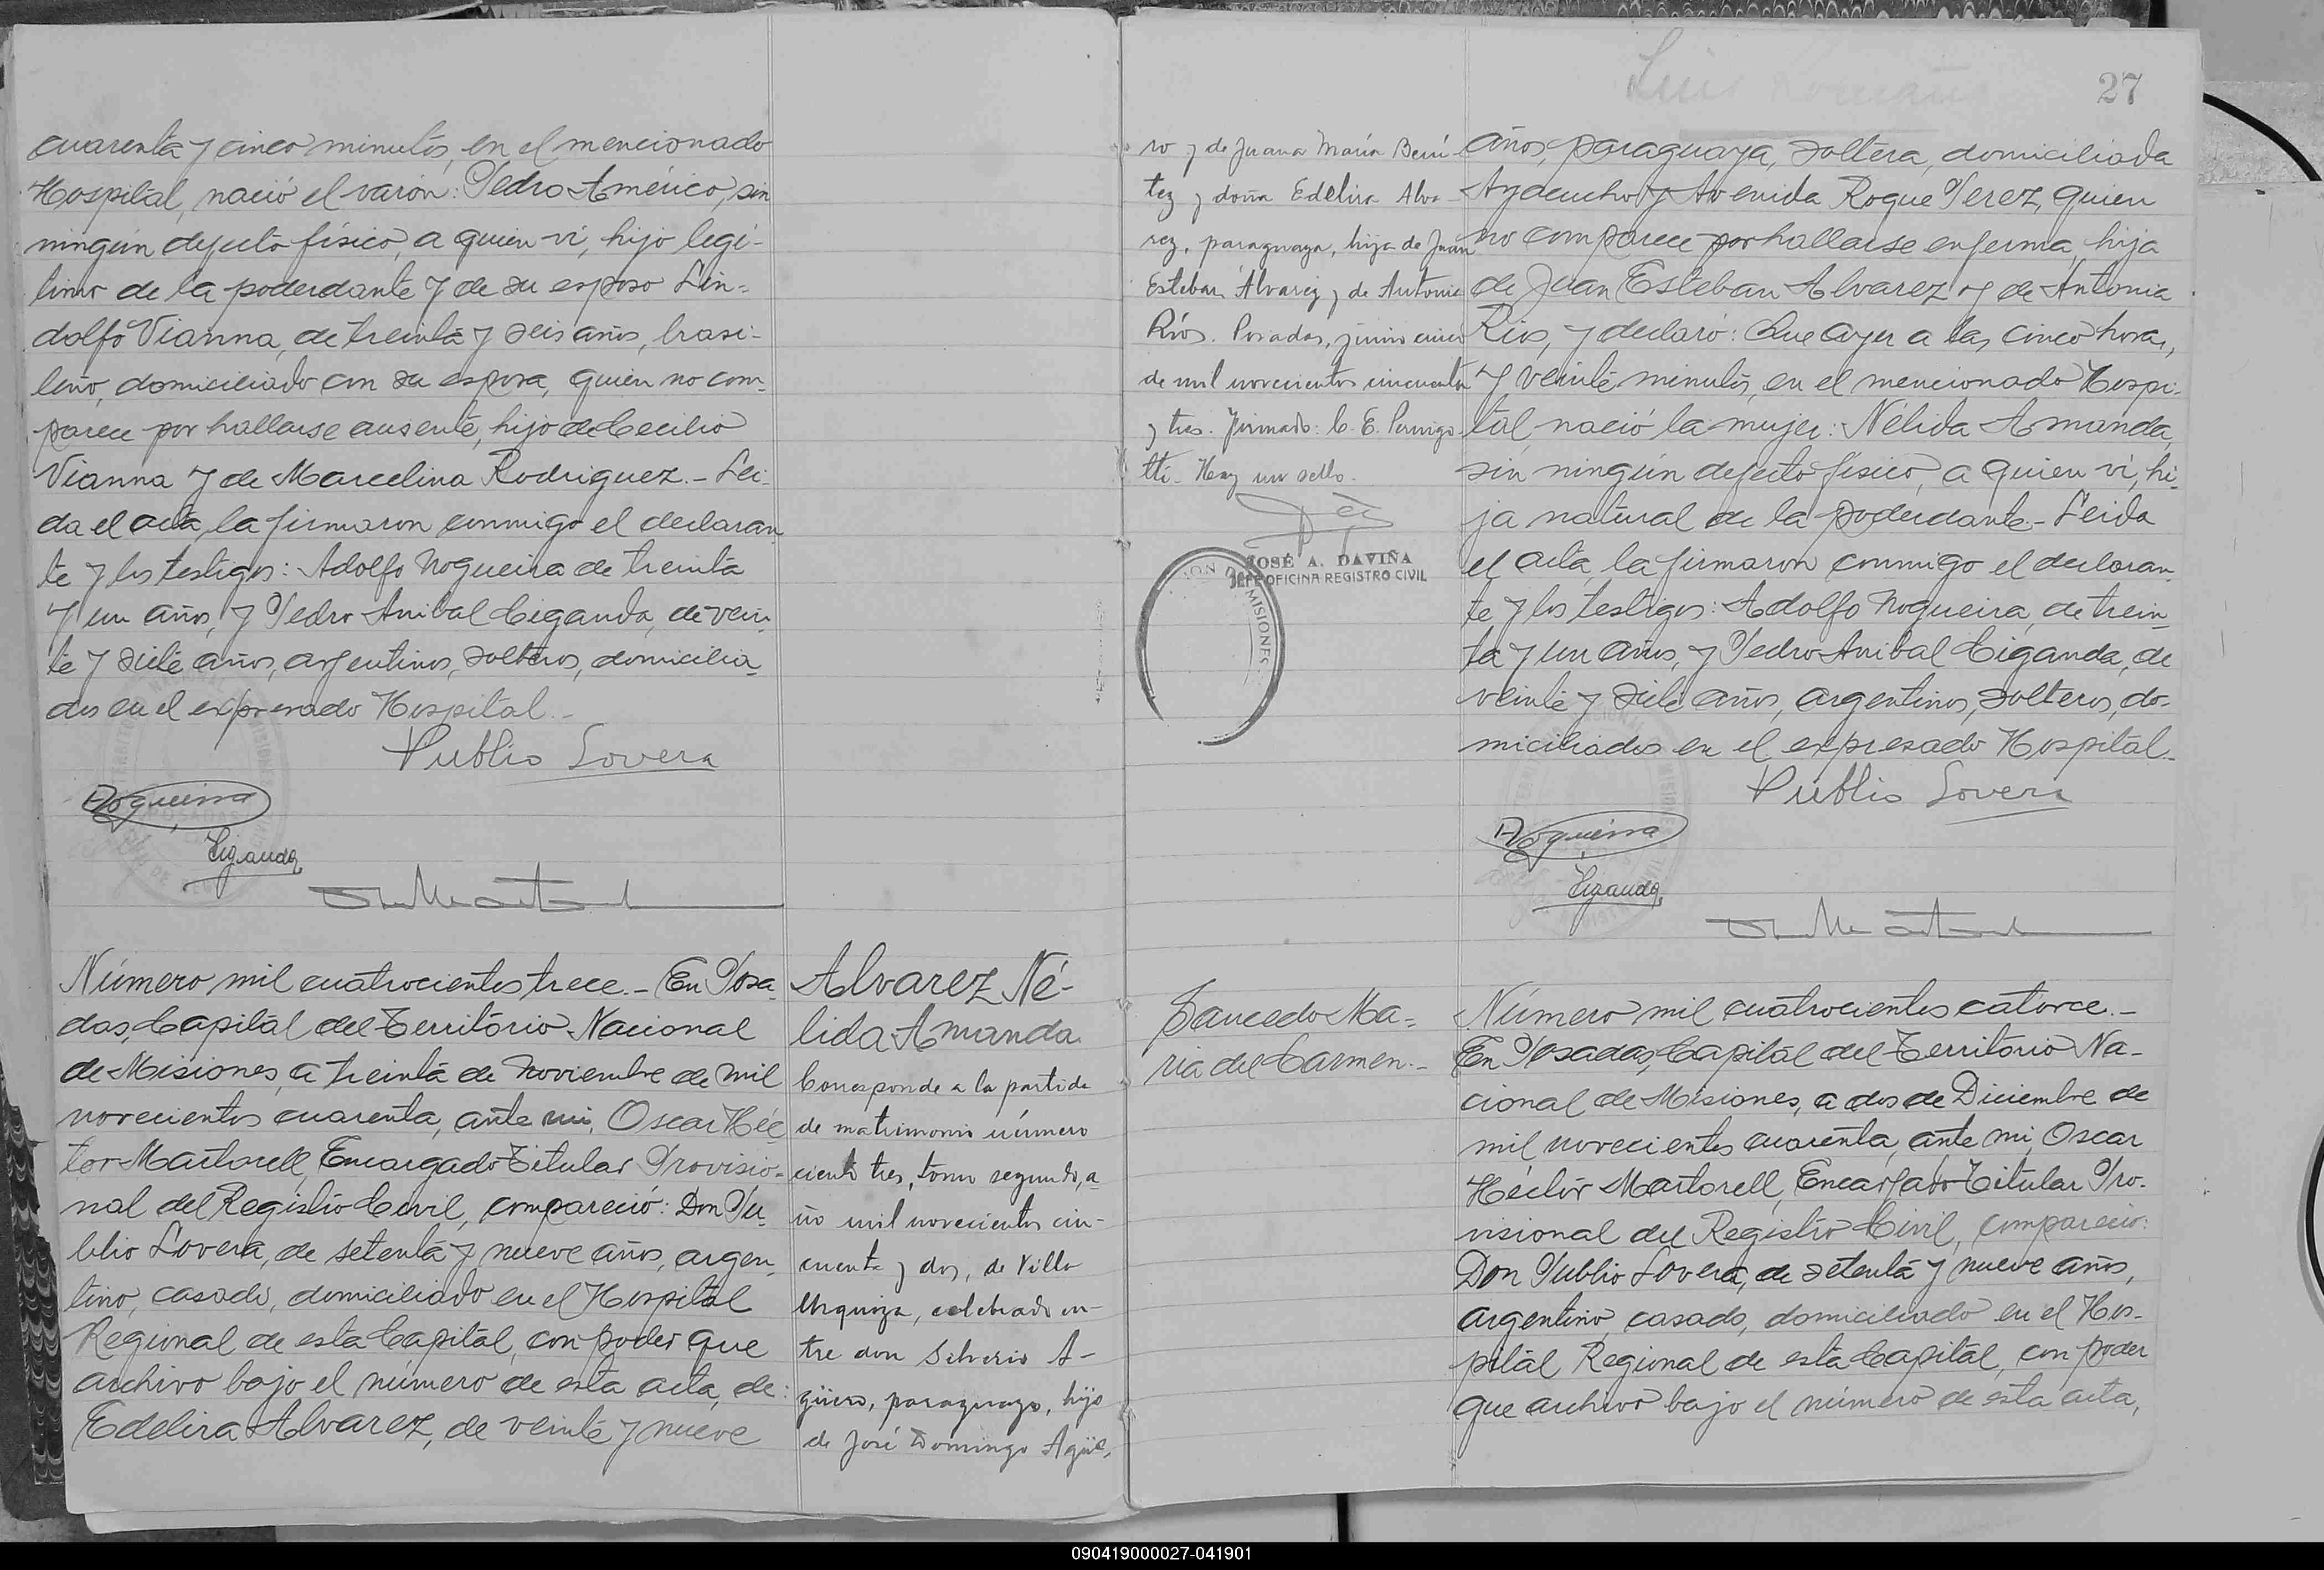 cuarenta y cinco minutos, en el mencionado
Hospital, nació el varón: Pedro Américo, sin
ningún defecto físico, a quien vi, hijo legí-
timo de la poderdante y de su esposo Lin-
dolfo Vianna, de treinta y seis años, brasi-
leño, domiciliado con su esposa, quien no com-
parece por hallarse ausente, hijo de Cecilio
Vianna y de Marcelina Rodriguez.- Leí-
da el acta, la firmaron conmigo el declaran-
te y los testigos: Adolfo Nogueira de treinta
y un años, y Pedro Anibal Ciganda, de vein-
te y siete años, argentinos, solteros, domicilia-
dos en el expresado Hospital.-
Publio Lovera
Nogueira
Ciganda
Número mil cuatrocientos trece.- En Posa-
das, Capital del Territorio Nacional
de Misiones, a treinta de Noviembre de mil
novecientos cuarenta, ante mi, Oscar Héc-
tor Martorell, Encargado Titular Provisio-
nal del Registro Civil, compareció: Don Pu-
blio Lovera, de setenta y nueve años, argen-
tino, casado, domiciliado en el Hospital
Regional de esta Capital, con poder que
archivo bajo el número de esta acta, de:
Edelira Alvarez, de veinte y nueve
Alvarez Né-
lida Amanda.
Corresponde a la partida
de matrimonio número
ciento tres, tomo segundo, a-
ño mil novecientos cin-
cuenta y dos, de Villa
Urquiza, celebrado en-
tre don Silverio A-
güero, paraguayo, hijo
de José Domingo Agüe-
ro y de Juana María Bení-
tez y doña Edelira Alva-
rez, paraguaya, hija de Juan
Esteban Álvarez y de Antonia
Ríos. Posadas, junio cinco
de mil novecientos cincuenta
y tres. Firmado: C. E. Pernigo-
tti.- Hay un sello.
JOSÉ A. DAVIÑA
JEFE OFICINA REGISTRO CIVIL
MISIONES
Saucedo Ma-
ria del Carmen.-
27
años, paraguaya, soltera, domiciliada
Ayacucho y Avenida Roque Perez, quien
no comparece por hallarse enferma, hija
de Juan Esteban Alvarez y de Antonia
Rios, y declaró: Que ayer a las cinco horas,
y veinte minutos, en el mencionado Hospi-
tal, nació la mujer: Nélida Amanda,
sin ningún defecto físico, a quien vi, hi-
ja natural de la poderdante.- Leida
el acta, la firmaron conmigo el declaran-
te y los testigos: Adolfo Nogueira, de trein-
ta y un años, y Pedro Anibal Ciganda, de
veinte y siete años, argentinos, solteros, do-
miciliados en el expresado Hospital.-
Publio Lovera
Nogueira
Ciganda
Número mil cuatrocientos catorce.-
En Posadas, Capital del Territorio Na-
cional de Misiones, a dos de Diciembre de
mil novecientos cuarenta, ante mi, Oscar
Héctor Martorell, Encargado Titular Pro-
visional del Registro Civil, compareció:
Don Publio Lovera, de setenta y nueve años,
argentino, casado, domiciliado en el Hos-
pital Regional de esta Capital, con poder
que archivo bajo el número de esta acta,
090419000027-041901